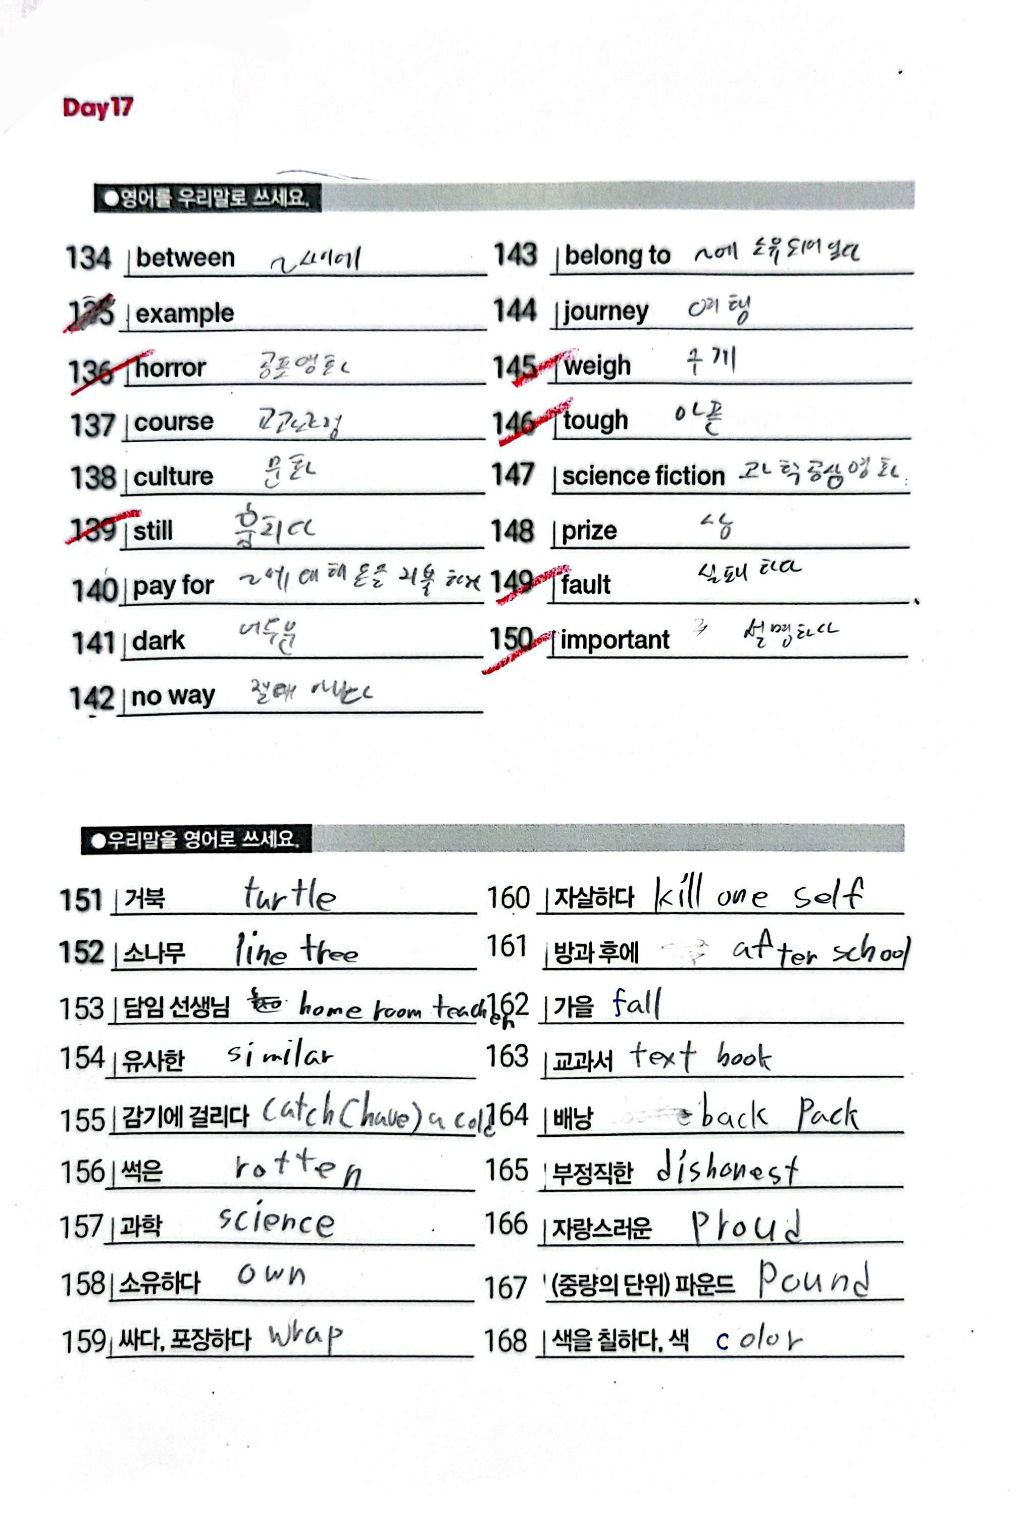 Day17
●영어를 우리말로 쓰세요.
134 between ~사이에
135 example
136 horror 공포영화
137 course 교과과정
138 culture 문화
139 still 훔치다
140 pay for ~에 대해 돈을 지불하다
141 dark 어두운
142 no way 절대 아니다
143 belong to ~에 소유되어 있다
144 journey 여행
145 weigh 무게
146 tough 아픈
147 science fiction 과학공상영화
148 prize 상
149 fault 실패하다
150 important 설명하다
●우리말을 영어로 쓰세요.
151 거북 turtle
152 소나무 line tree
153 담임 선생님 home room teacher
154 유사한 similar
155 감기에 걸리다 catch(have) a cold
156 썩은 rotten
157 과학 science
158 소유하다 own
159 싸다, 포장하다 wrap
160 자살하다 kill one self
161 방과 후에 after school
162 가을 fall
163 교과서 text book
164 배낭 back pack
165 부정직한 dishonest
166 자랑스러운 proud
167 (중량의 단위) 파운드 pound
168 색을 칠하다, 색 color